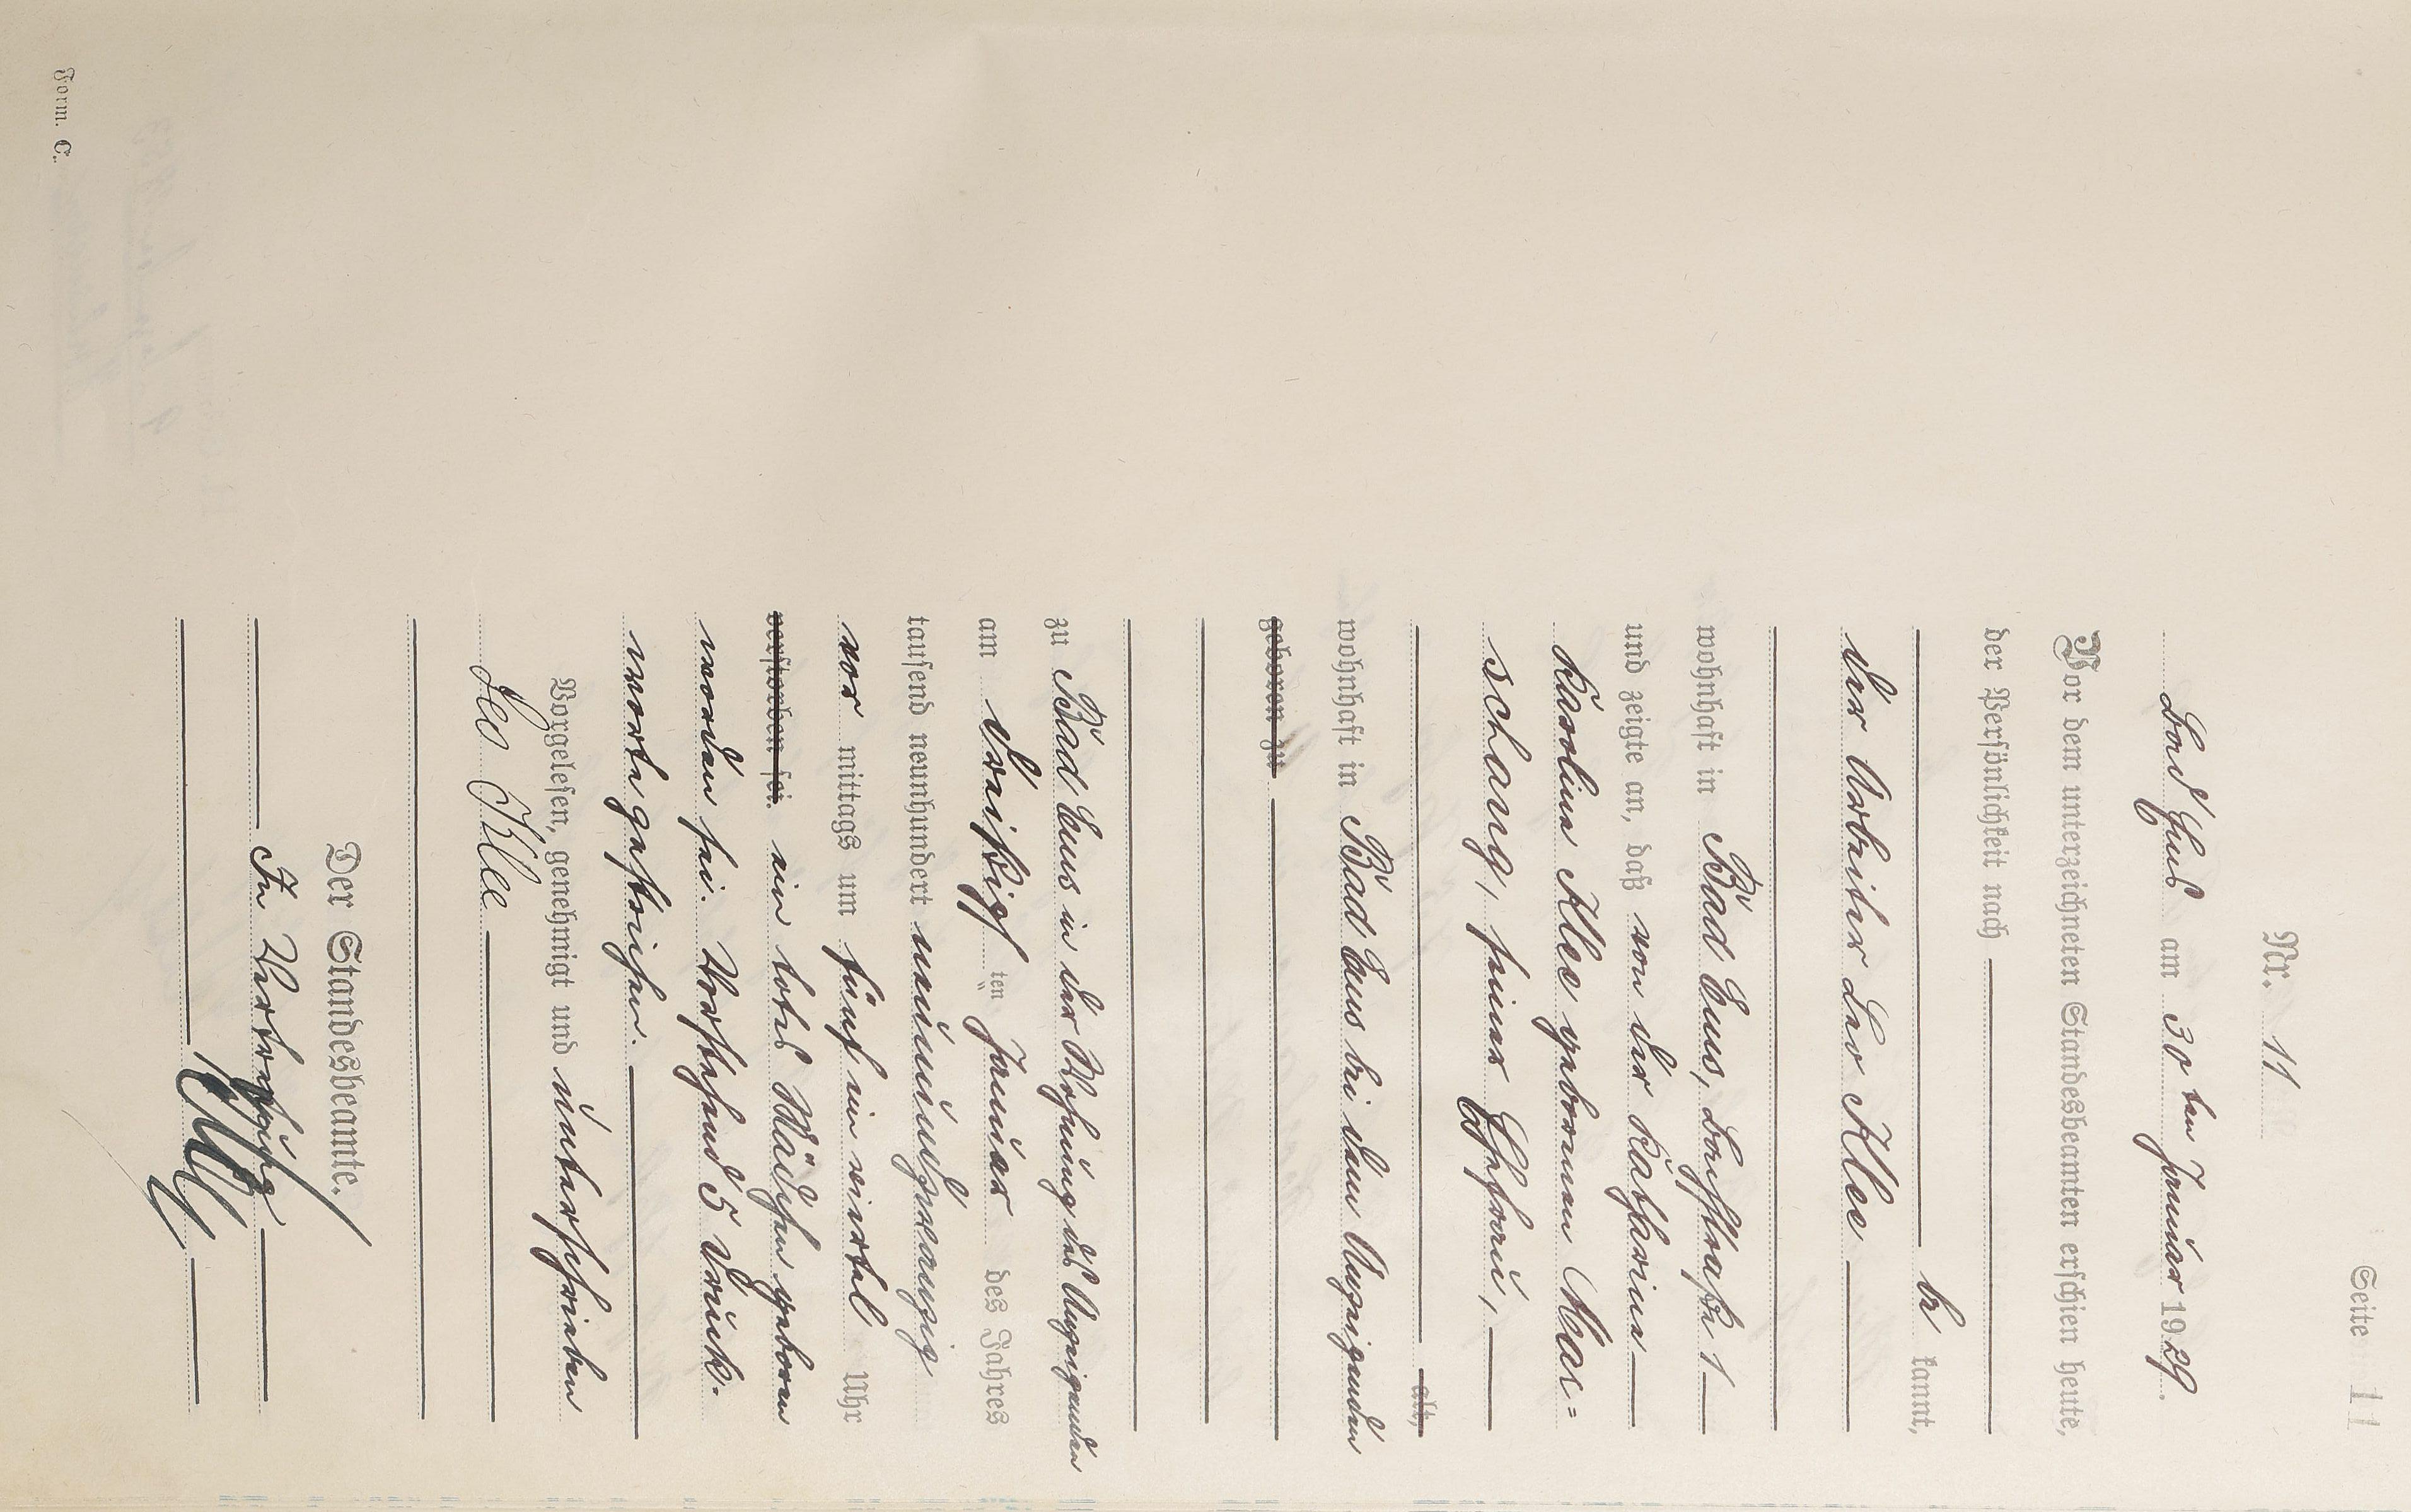 Seite 11
Nr. 11
Bad Ems am 30 ten Januar 1929.
Vor dem unterzeichneten Standesbeamten erschien heute,
der Persönlichkeit nach
be kannt,
der Arbeiter Leo Klee
wohnhaft in Bad Ems, Bachstraße 1
und zeigte an, daß von der Katharina
Karolina Klee geborenen Mar=
schang, seiner Ehefrau,
alt,
wohnhaft in Bad Ems bei dem Anzeigenden
geboren zu
zu Bad Ems in der Wohnung des Anzeigenden
am dreißigsten Januar des Jahres
tausend neunhundert neunundzwanzig
vor mittags um fünf ein viertel Uhr
verstorben sei. ein totes Mädchen geboren
worden sei. Vorstehend 5 Druck-
worte gestrichen.
Vorgelesen, genehmigt und unterschrieben
Leo Klee
Der Standesbeamte.
In Vertretung
Form. C.